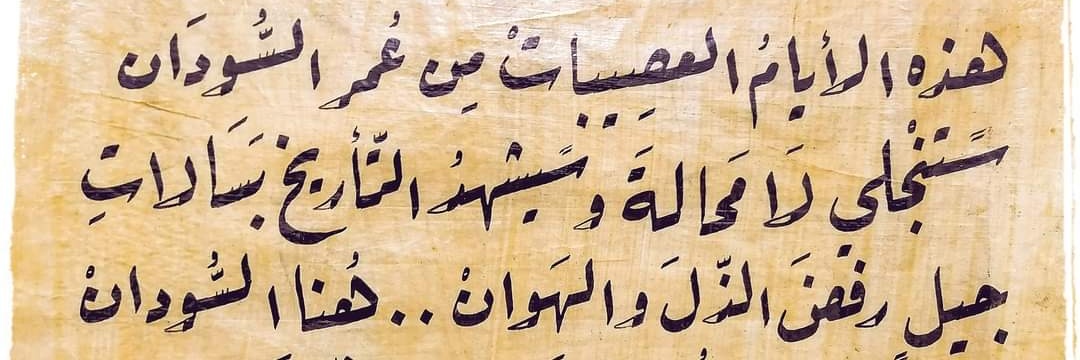 هذه الأيامُ العصِيباتْ مِن عُمر السُّودَان
سَتنْجَلي لَا مَحَالةَ وسَيشهدُ التّأريخ بَسَالاتِ
جيل رفضَ الذّلَ والهَوانْ .. هُنا السُّودانْ